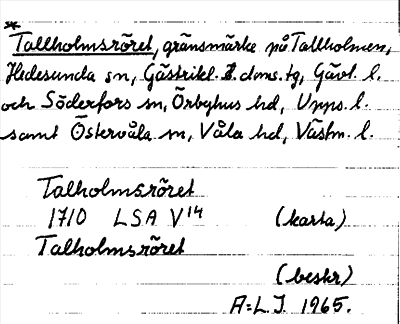 *
Tallholmsröret, gränsmärke på Tallholmen,
Hedesunda sn, Gästrikl. ö. doms.tg, Gävl. l.
och Söderfors sn, Örbyhus hd, Upps. l.
samt Östervåla sn, Våla hd, Västm. l.
Talholmsröret
1710 LSA V14 (karta)
Talholmsröret
(beskr)
A:L J. 1965.